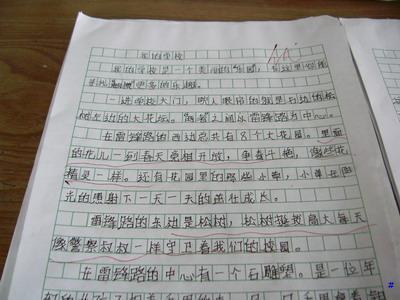 我的学校
我的学校是一个美丽的"乐园",在这里
更多的乐趣。
一进学校大门,映入眼帘的就是右边的松
树左边的大花坛。 以雷锋路为中心。
在雷锋路的西边总共有8个大花园。里面
的花儿一到春天竞相开放,争奇斗艳,像些花
精灵一样。还有花园里的那些小草,小草在阳
光的照射下一天一天的茁壮成长。
雷锋路的东边是松树,松树挺拔高大每天
像警察叔叔一样守卫着我们的校园。
在雷锋路的中心有一个石雕塑。是一位年
#